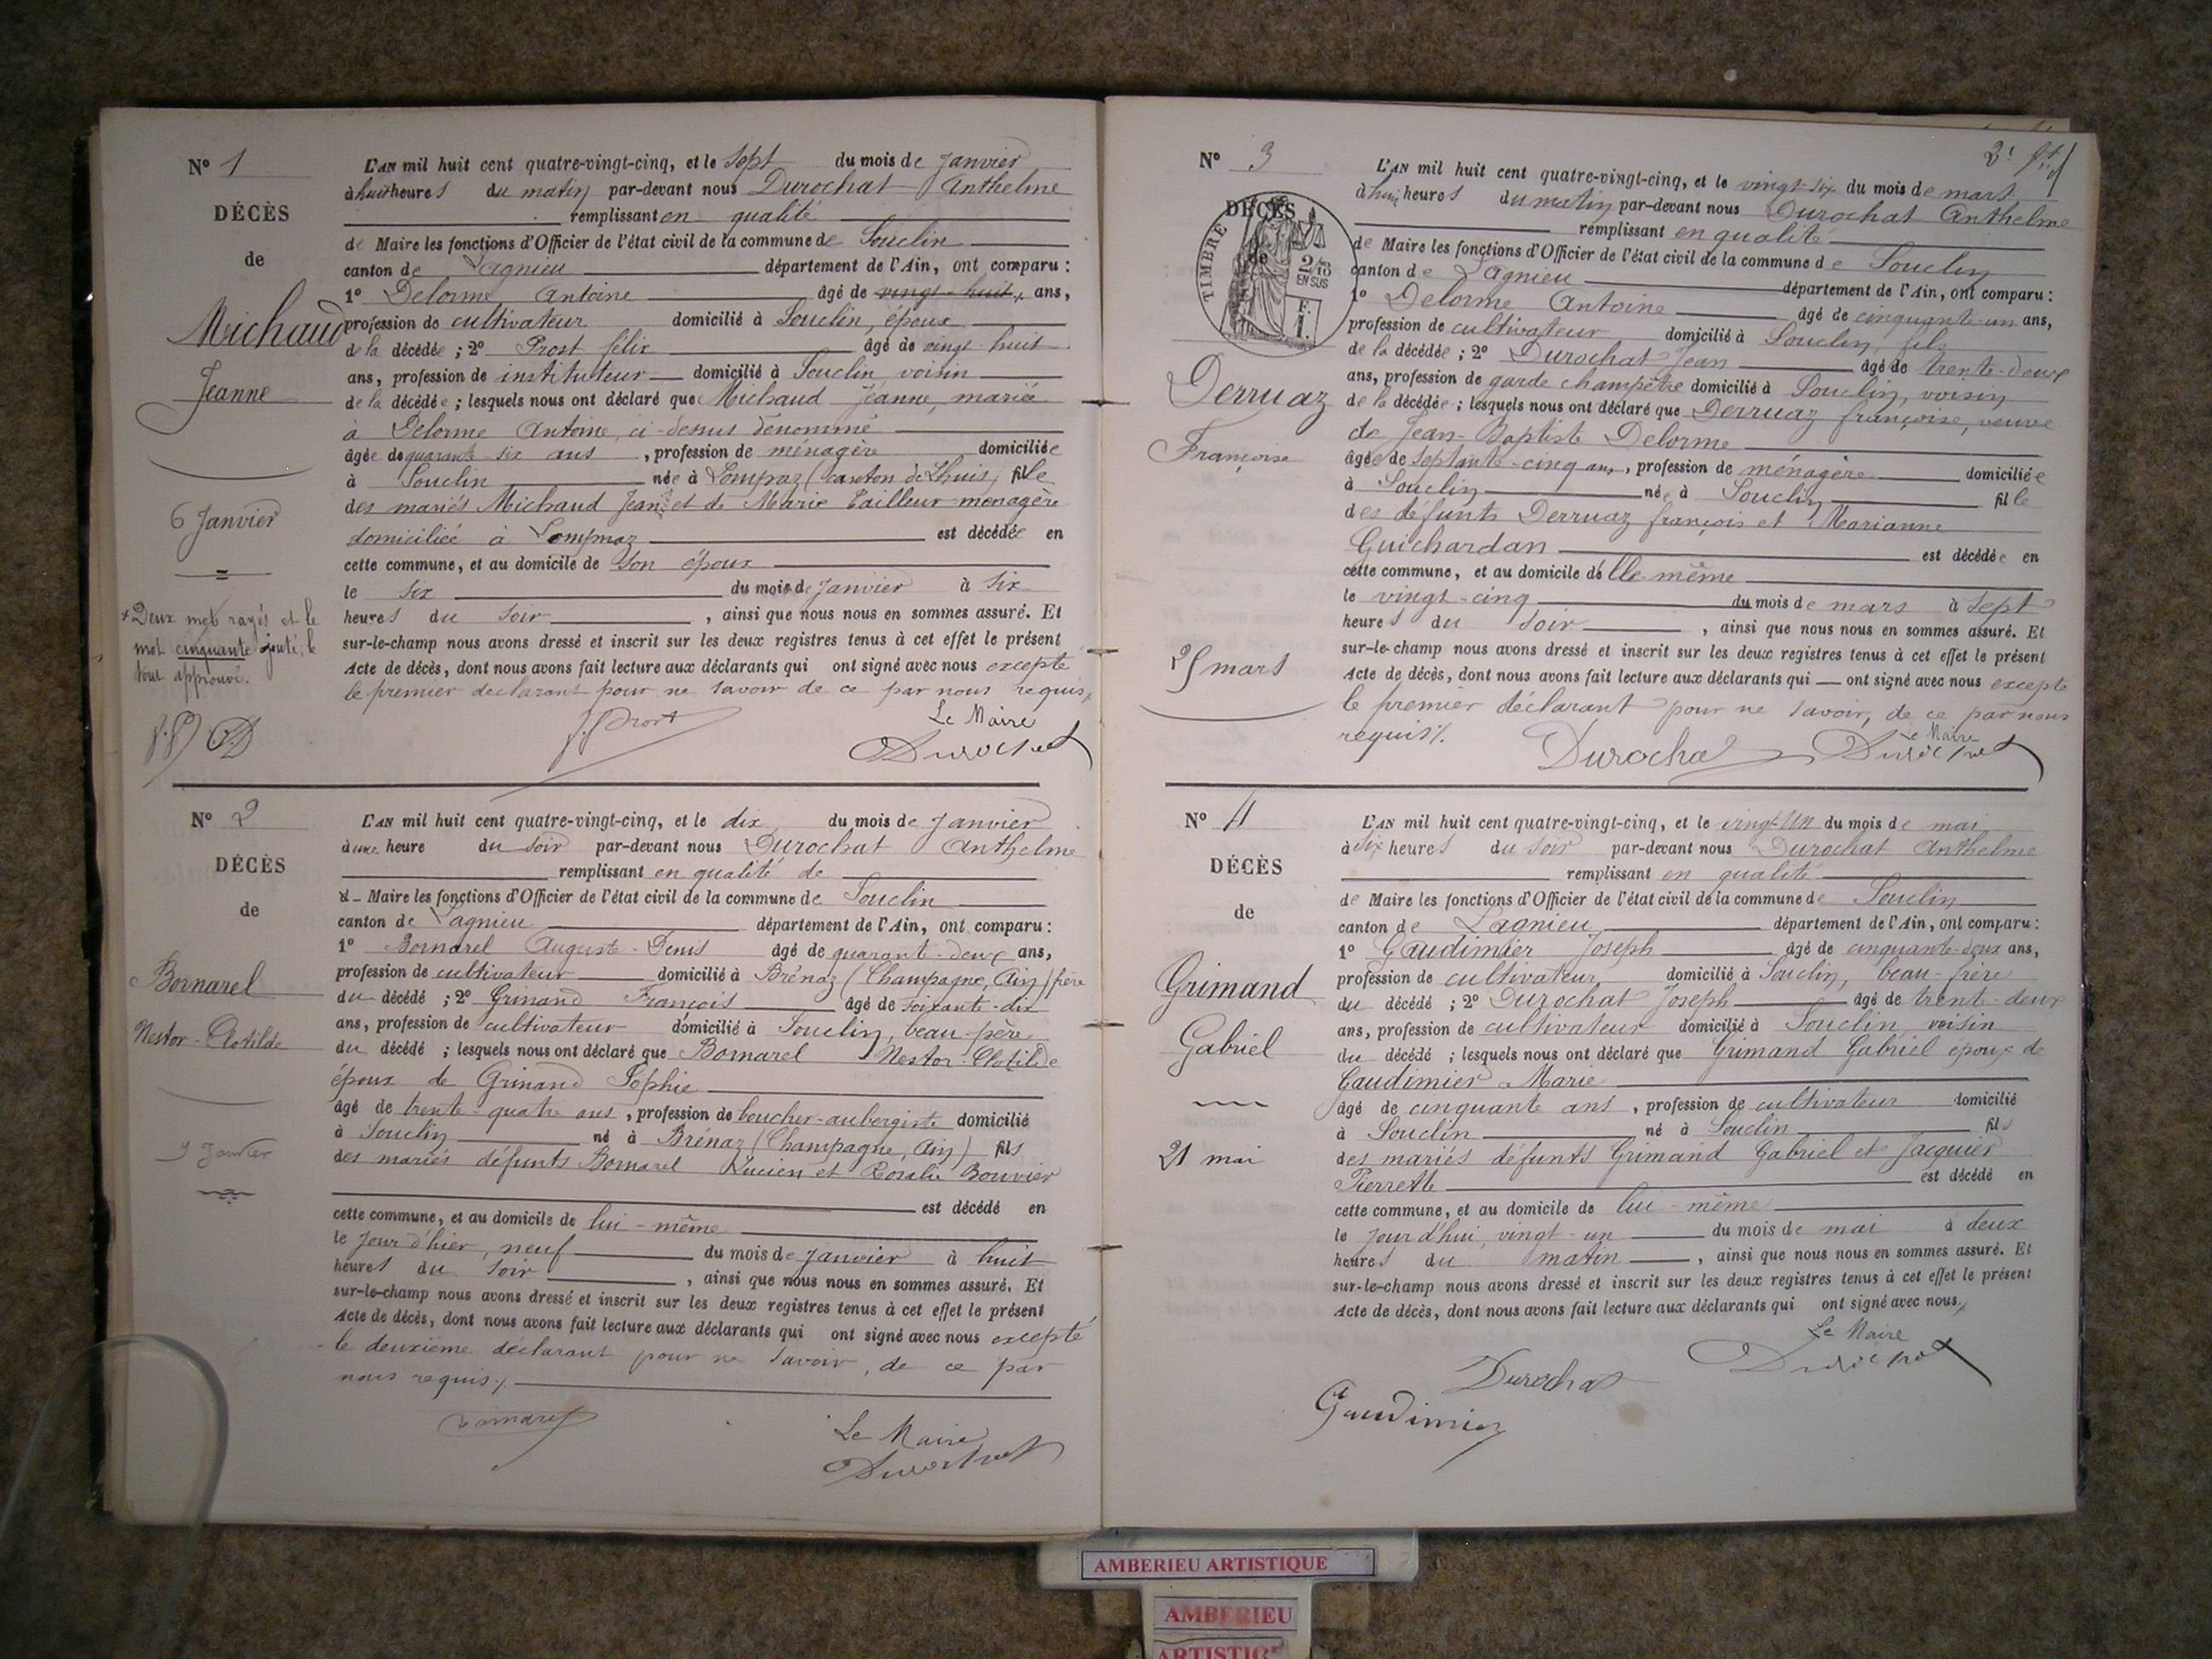 N° 1
DÉCÈS
de
Michaud
Jeanne
6 Janvier
+ Deux mots rayés et le
mot cinquante ajouté; le
tout approuvé.
L'AN mil huit cent quatre-vingt-cinq, et le sept du mois de Janvier
à huit heures du matin par-devant nous Durochat Anthelme
remplissant en qualité
de Maire les fonctions d'Officier de l'état civil de la commune de Souclin
canton de Lagnieu département de l'Ain, ont comparu :
1° Delorme Antoine âgé de vingt-huit + ans,
profession de cultivateur domicilié à Souclin, époux
de la décédée ; 2° Prost félix âgé de vingt-huit
ans, profession de instituteur domicilié à Souclin voisin
de la décédée ; lesquels nous ont déclaré que Michaud Jeanne, mariée
à Delorme Antoine, ci-dessus dénommé
âgée de quarante-six ans, profession de ménagère domiciliée
à Souclin née à Lompnaz (canton de Lhuis) fille
des mariés Michaud Jean et de Marie Tailleur ménagère
domiciliée à Lompnaz est décédée en
cette commune, et au domicile de son époux
le six du mois de Janvier à six
heures du soir, ainsi que nous nous en sommes assuré. Et
sur-le-champ nous avons dressé et inscrit sur les deux registres tenus à cet effet le présent
Acte de décès, dont nous avons fait lecture aux déclarants qui ont signé avec nous excepté
le premier déclarant pour ne savoir de ce par nous requis
Le Maire
f. Prost Durochat
N° 2
DÉCÈS
de
Bornarel
Nestor-Clotilde
9 Janvier
L'AN mil huit cent quatre-vingt-cinq, et le dix du mois de Janvier
à une heure du soir par-devant nous Durochat Anthelme
remplissant en qualité de
Maire les fonctions d'Officier de l'état civil de la commune de Souclin
canton de Lagnieu département de l'Ain, ont comparu :
1° Bornarel Auguste-Denis âgé de quarante-deux ans,
profession de cultivateur domicilié à Brénaz (Champagne, Ain) frère
du décédé ; 2° Grinand François âgé de soixante-dix
ans, profession de cultivateur domicilié à Souclin, beau-père
du décédé ; lesquels nous ont déclaré que Bornarel Nestor-Clotilde
époux de Grinand Sophie
âgé de trente-quatre ans, profession de boucher-aubergiste domicilié
à Souclin né à Brénaz (Champagne, Ain) fils
des mariés défunts Bornarel Lucien et Rosalie Bouvier
est décédé en
cette commune, et au domicile de lui-même
le jour d'hier, neuf du mois de Janvier à huit
heures du soir, ainsi que nous nous en sommes assuré. Et
sur-le-champ nous avons dressé et inscrit sur les deux registres tenus à cet effet le présent
Acte de décès, dont nous avons fait lecture aux déclarants qui ont signé avec nous excepté
le deuxième déclarant pour ne savoir, de ce par
nous requis ./.
Bornarel
Le Maire
Durochat
N° 3
DÉCÈS
de
TIMBRE
2/10
EN SUS
F.
1.
Derruaz
Françoise
25 mars
L'AN mil huit cent quatre-vingt-cinq, et le vingt-six du mois de mars
à huit heures du matin par-devant nous Durochat Anthelme
remplissant en qualité
de Maire les fonctions d'Officier de l'état civil de la commune de Souclin
canton de Lagnieu département de l'Ain, ont comparu :
1° Delorme Antoine âgé de cinquante-un ans,
profession de cultivateur domicilié à Souclin, fils
de la décédée ; 2° Durochat Jean âgé de trente-deux
ans, profession de garde champêtre domicilié à Souclin, voisin
de la décédée ; lesquels nous ont déclaré que Derruaz françoise, veuve
de Jean-Baptiste Delorme
âgée de septante-cinq ans, profession de ménagère domiciliée
à Souclin née à Souclin fille
des défunts Derruaz françois et Marianne
Guichardan est décédée en
cette commune, et au domicile d'elle-même
le vingt-cinq du mois de mars à sept
heures du soir, ainsi que nous nous en sommes assuré. Et
sur-le-champ nous avons dressé et inscrit sur les deux registres tenus à cet effet le présent
Acte de décès, dont nous avons fait lecture aux déclarants qui — ont signé avec nous excepté
le premier déclarant pour ne savoir, de ce par nous
requis ./.
Le Maire
Durochat Durochat
N° 4
DÉCÈS
de
Grimand
Gabriel
21 mai
L'AN mil huit cent quatre-vingt-cinq, et le vingt-un du mois de mai
à six heures du soir par-devant nous Durochat Anthelme
remplissant en qualité
de Maire les fonctions d'Officier de l'état civil de la commune de Souclin
canton de Lagnieu département de l'Ain, ont comparu :
1° Gaudimier Joseph âgé de cinquante-deux ans,
profession de cultivateur domicilié à Souclin, beau-frère
du décédé ; 2° Durochat Joseph âgé de trente-deux
ans, profession de cultivateur domicilié à Souclin voisin
du décédé ; lesquels nous ont déclaré que Grimand Gabriel époux de
Gaudimier Marie
âgé de cinquante ans, profession de cultivateur domicilié
à Souclin né à Souclin fils
des mariés défunts Grimand Gabriel et Jacquier
Pierrette est décédé en
cette commune, et au domicile de lui-même
le jourd'hui vingt-un du mois de mai à deux
heures du matin, ainsi que nous nous en sommes assuré. Et
sur-le-champ nous avons dressé et inscrit sur les deux registres tenus à cet effet le présent
Acte de décès, dont nous avons fait lecture aux déclarants qui ont signé avec nous
Le Maire
Durochat Durochat
Gaudimier
AMBERIEU ARTISTIQUE
AMBERIEU
ARTISTIQ